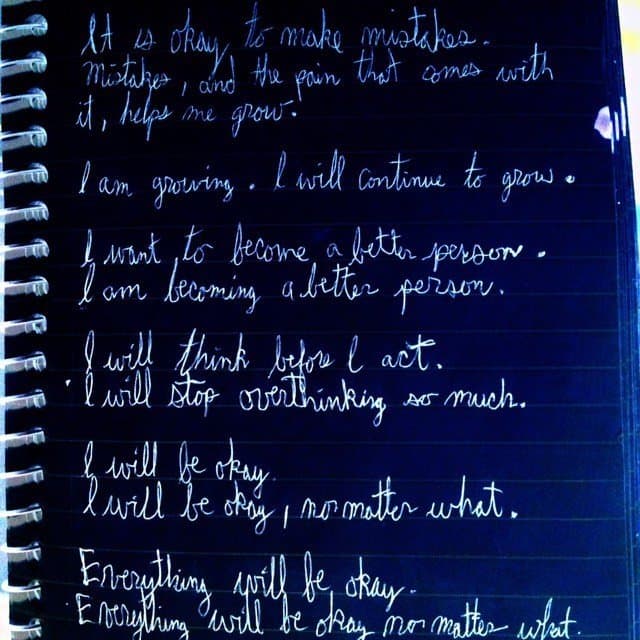 It is okay to make mistakes.
Mistakes, and the pain that comes with
it, helps me grow.
I am growing. I will continue to grow.
I want to become a better person.
I am becoming a better person.
I will think before I act.
I will stop overthinking so much.
I will be okay.
I will be okay, no matter what.
Everything will be okay.
Everything will be okay no matter what.